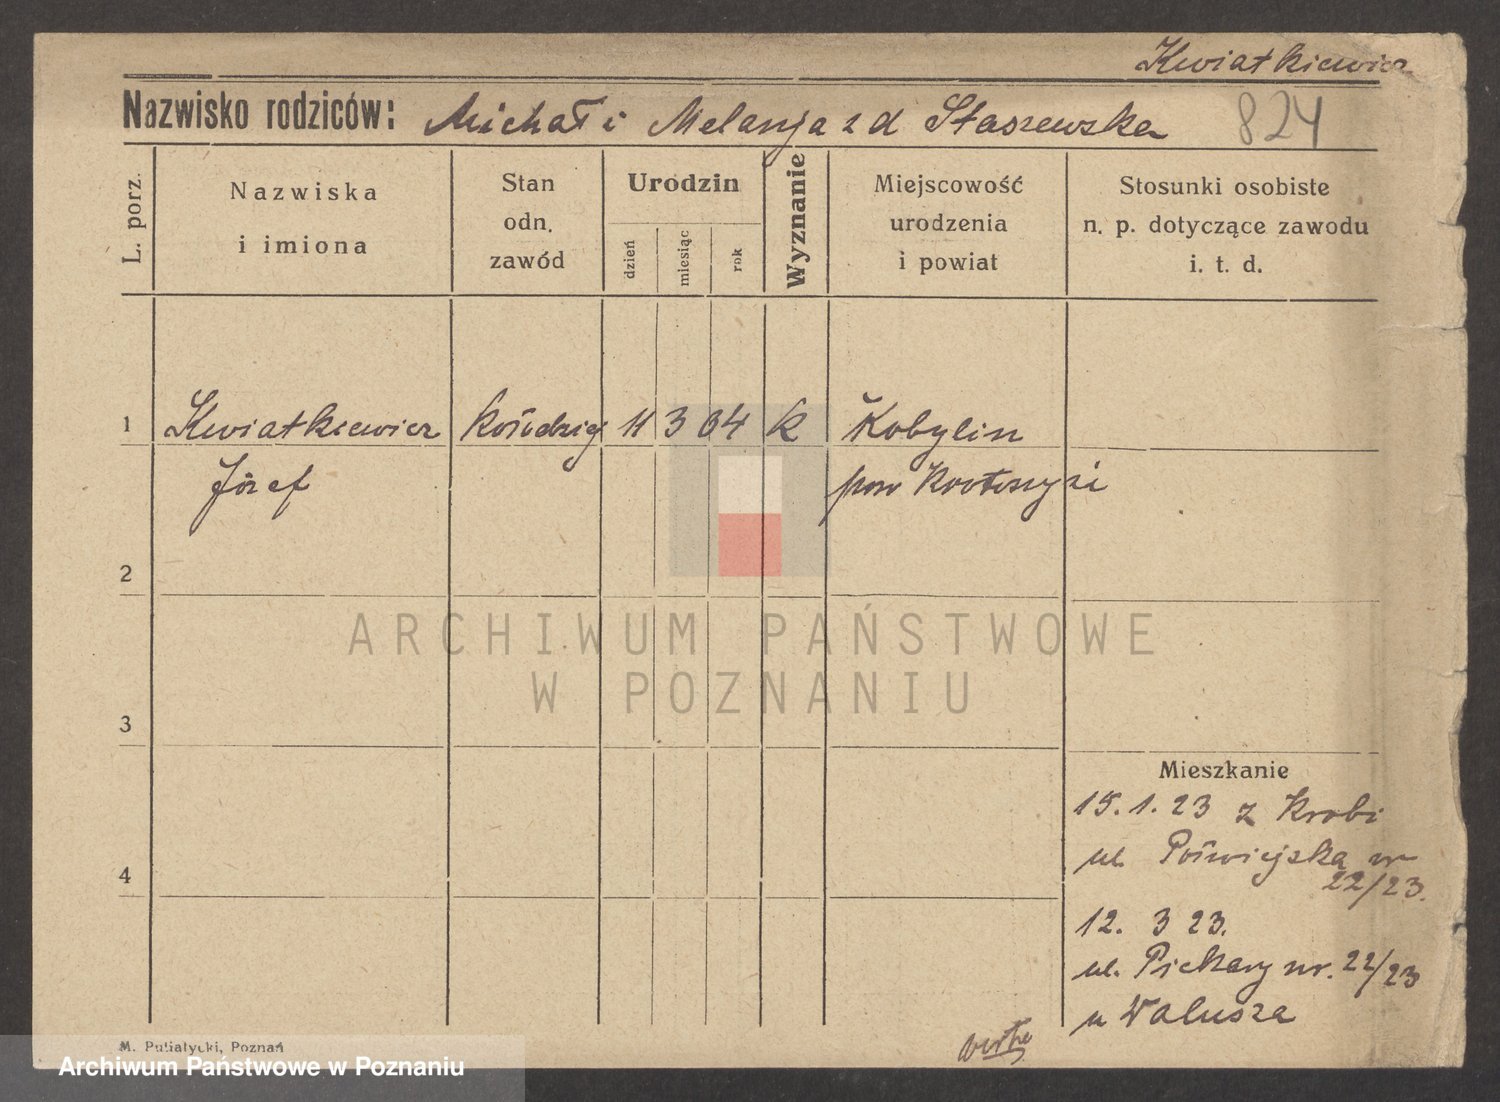 Kwiatkiewicz
Nazwisko rodziców: Michał i Melanja z d Staszewska 824
L. porz.
Nazwiska
i imiona
Stan
odn.
zawód
Urodzin
dzień
miesiąc
rok
Wyznanie
Miejscowość
urodzenia
i powiat
Stosunki osobiste
n. p. dotyczące zawodu
i. t. d.
1 Kwiatkiewicz 11 3 04 k Kobylin
Józef pow
2
3
4
Mieszkanie
15. 1. 23 z Krobi
ul. nr
22/23.
12. 3 23.
ul. Piekary nr. 22/23
u Walusza
M. Putiatycki, Poznań
ARCHIWUM PAŃSTWOWE
W POZNANIU
Archiwum Państwowe w Poznaniu